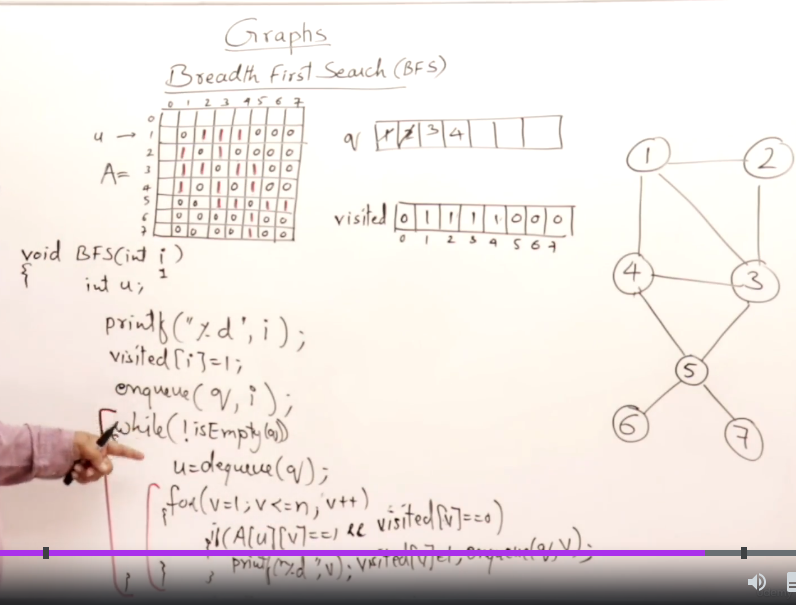 Graphs
Breadth First Search (BFS)
0 1 2 3 4 5 6 7
0
u → 1 0 1 1 1 0 0 0
2 1 0 1 0 0 0 0
A= 3 1 1 0 1 1 0 0
4 1 0 1 0 1 0 0
5 0 0 1 1 0 1 1
6 0 0 0 0 1 0 0
7 0 0 0 0 1 0 0
q 1 2 3 4
visited 0 1 1 1 1 0 0 0
0 1 2 3 4 5 6 7
1 2
4 3
5
6 7
void BFS(int i)
1
{ int u;
printf("%d", i);
visited[i]=1;
enqueue(q, i);
while(!isEmpty(q))
u=dequeue(q);
for(v=1; v<=n; v++)
{
if(A[u][v]==1 && visited[v]==0)
{ printf("%d", v); visited[v]=1; enqueue(q, v);
} } }